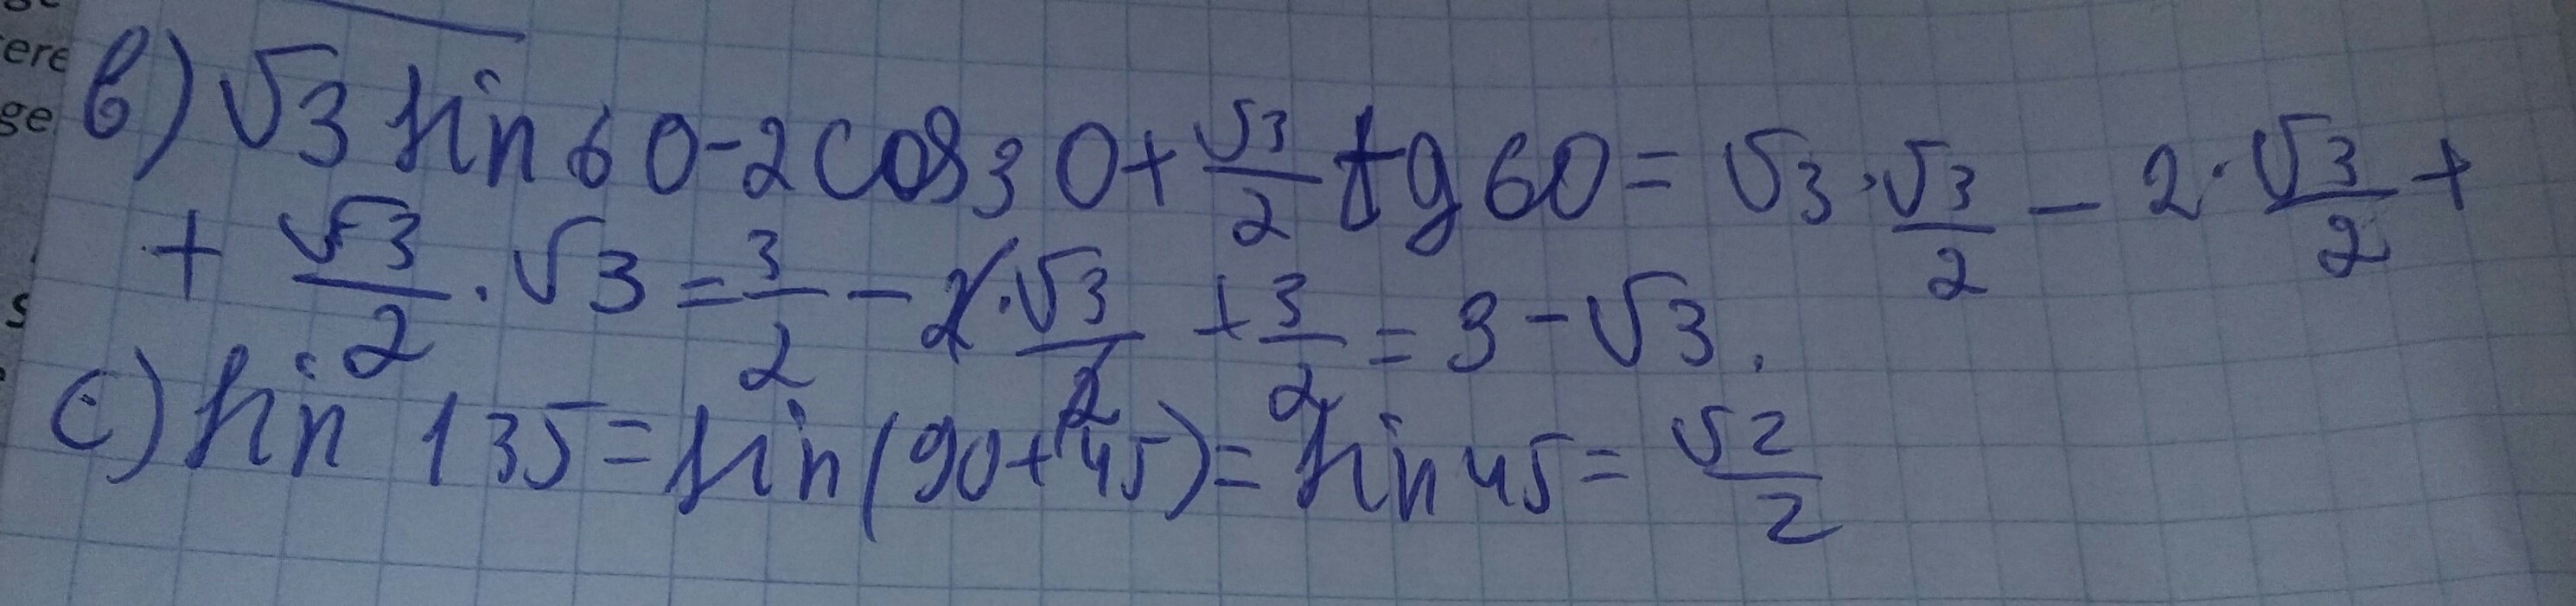 ere
ge
b) √3 sin 60 - 2 cos 30 + √3/2 tg 60 = √3 · √3/2 - 2 · √3/2 +
+ √3/2 · √3 = 3/2 - 2 · √3/2 + 3/2 = 3 - √3.
c) sin 135 = sin (90 + 45) = sin 45 = √2/2